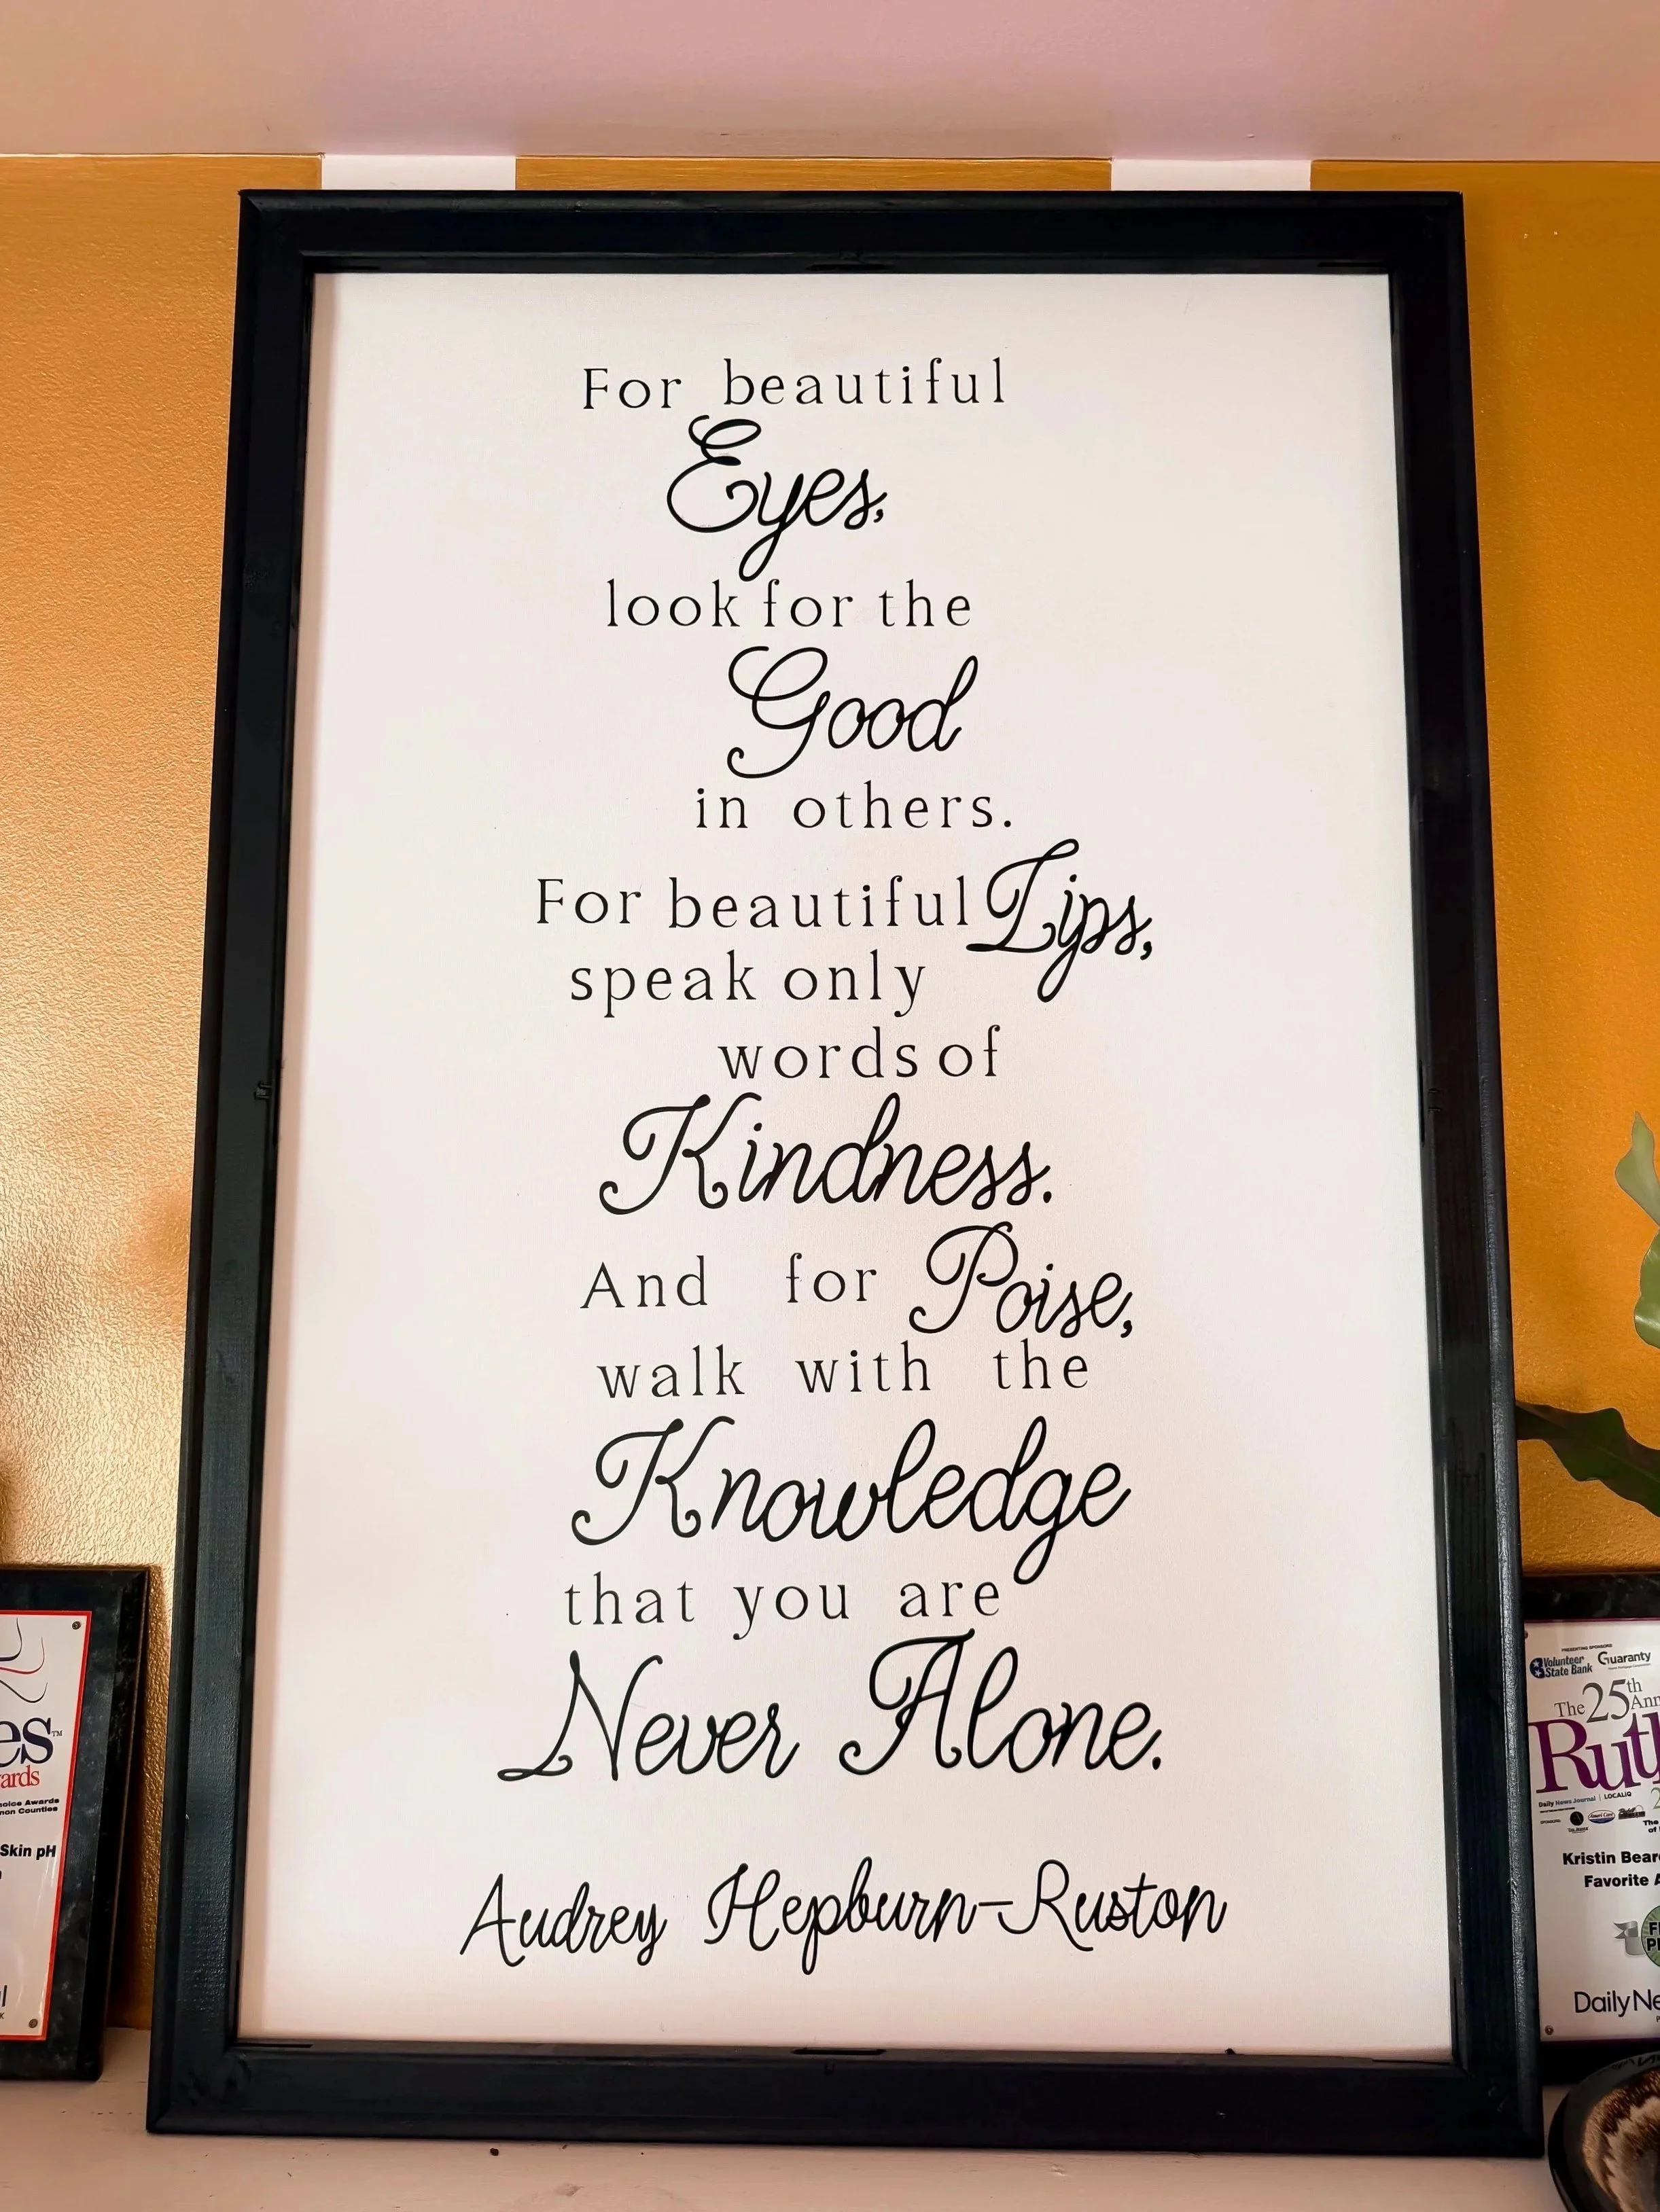 For beautiful
Eyes,
look for the
Good
in others.
For beautiful Lips,
speak only
words of
Kindness.
And for Poise,
walk with the
Knowledge
that you are
Never Alone.
Audrey Hepburn-Ruston
es™
ards
hoice Awards
non Counties
Skin pH
PRESENTING SPONSORS
Volunteer State Bank
Guaranty
The 25th Ann
Ruth
Daily News Journal | LOCALiQ
Kristin Bear
Favorite A
Daily Ne